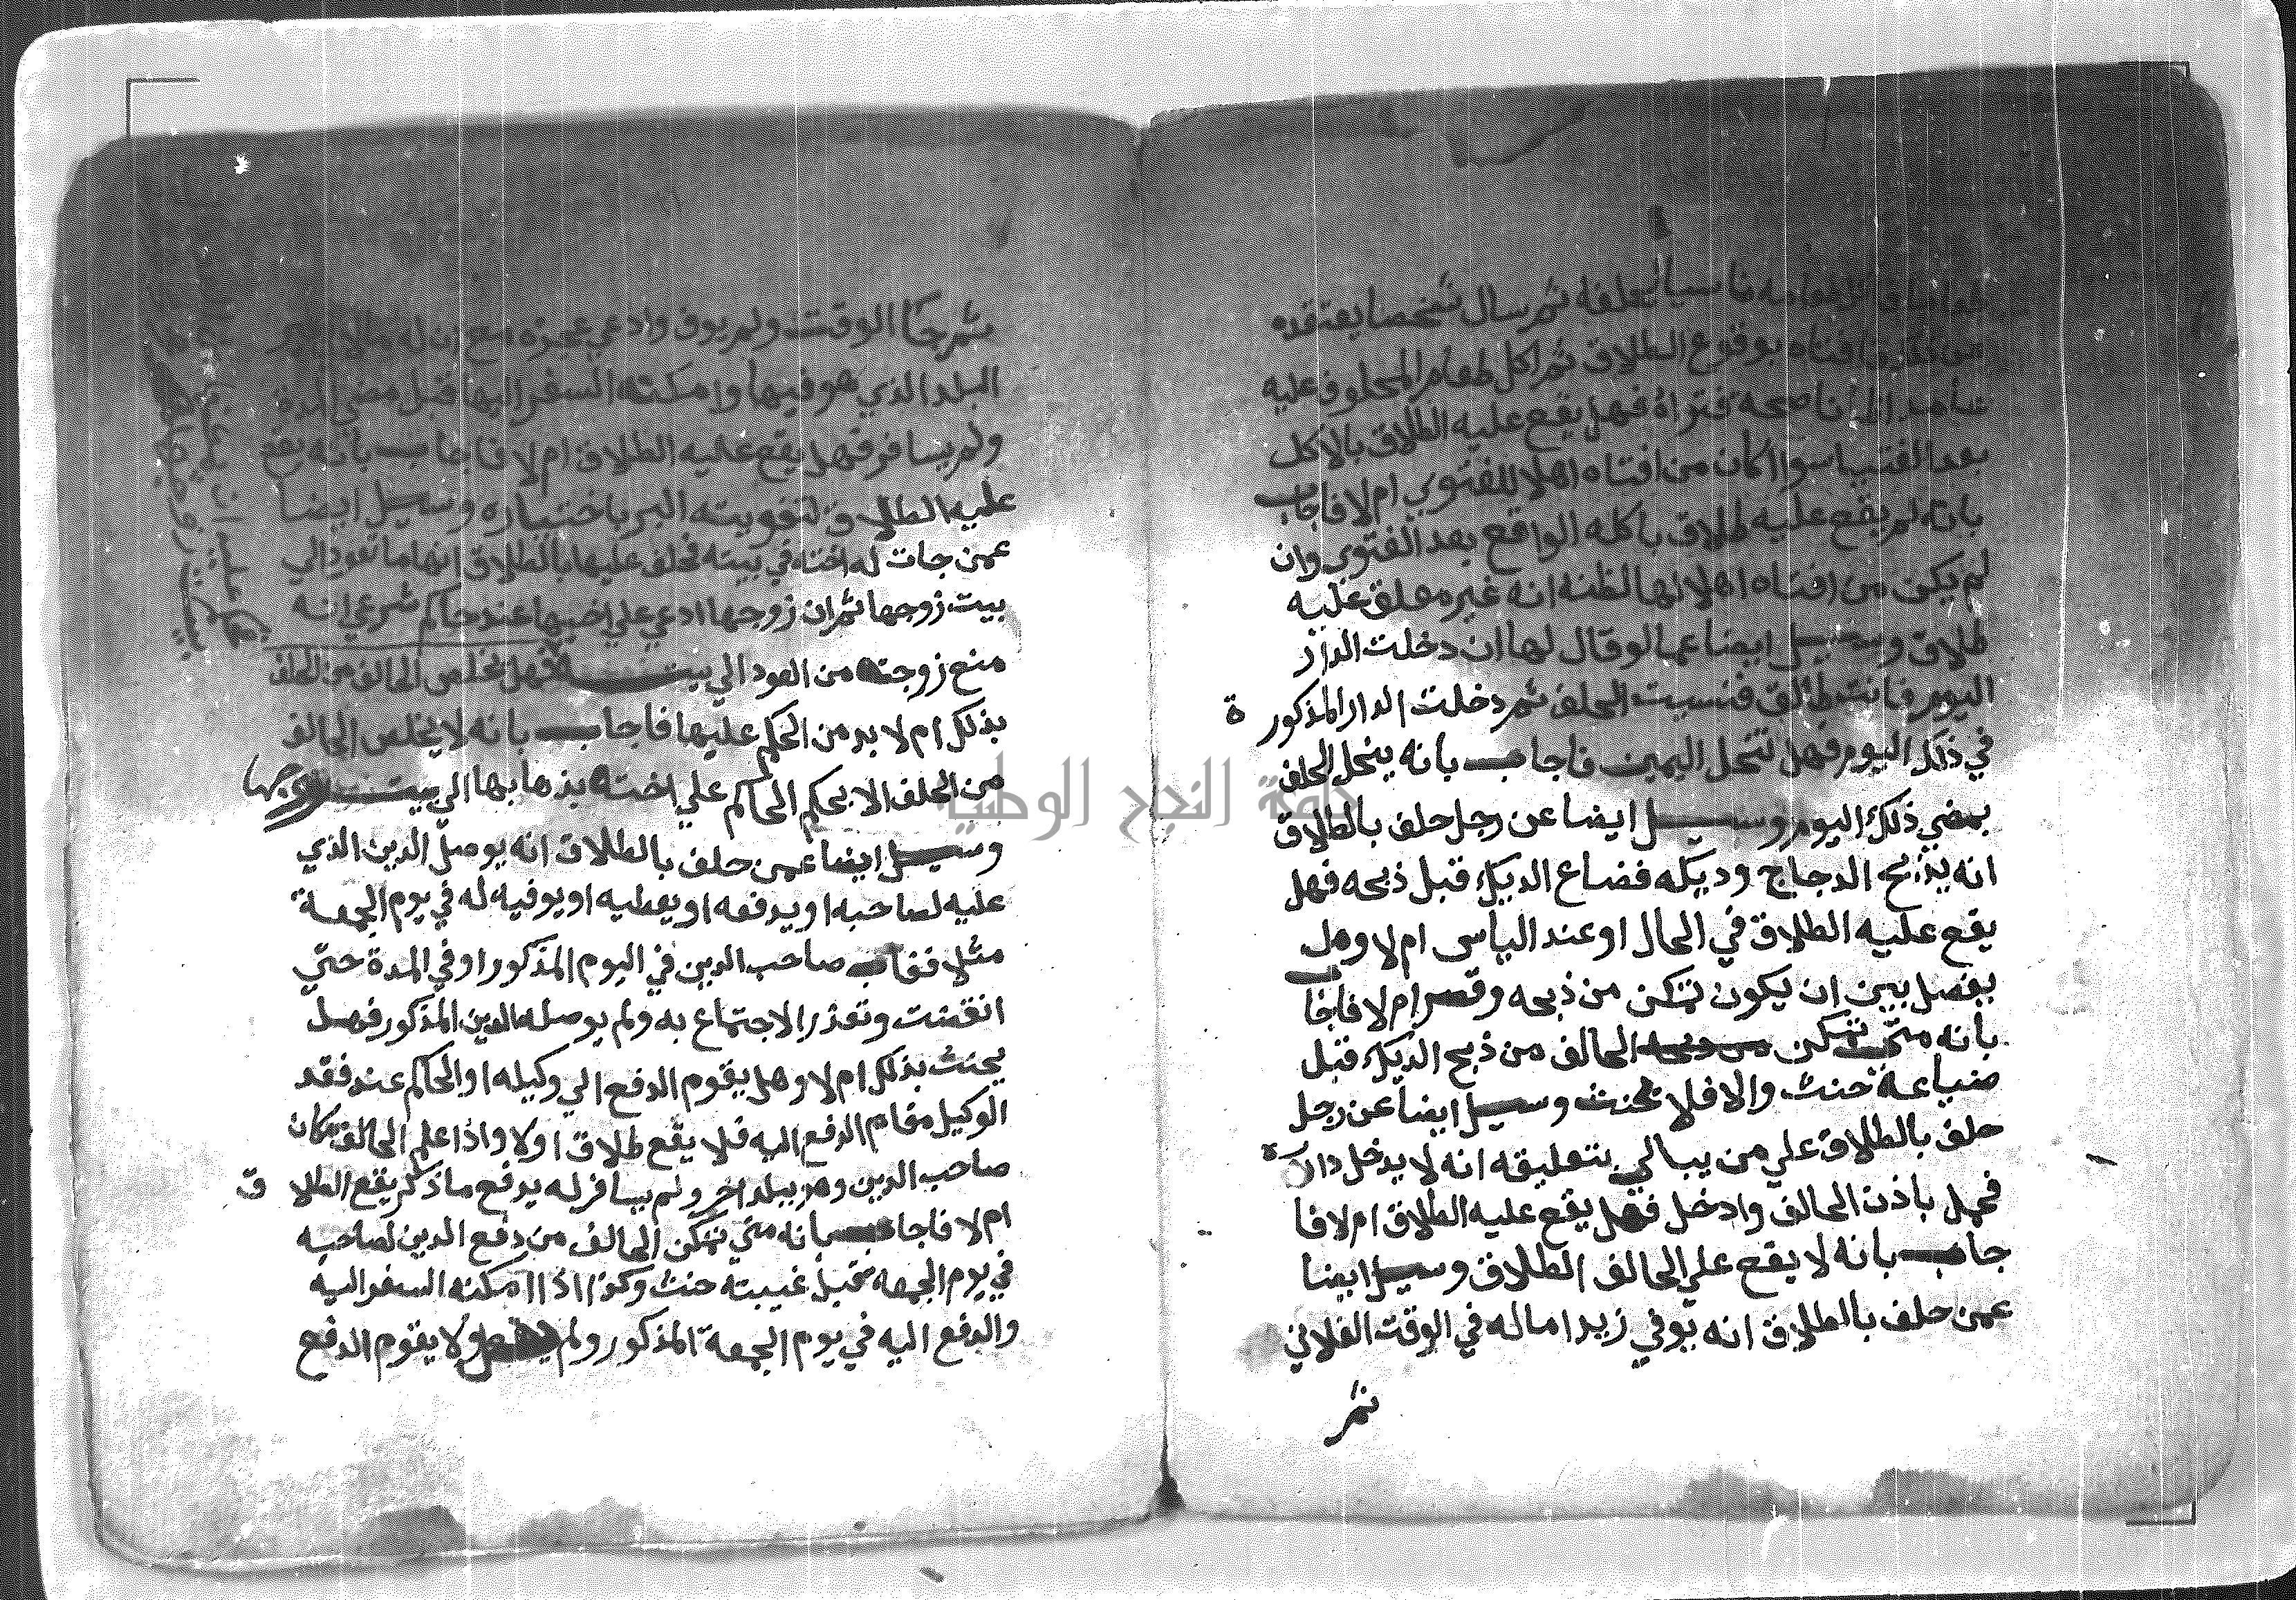 ناسيا لحلفه ثم سال شخصا يعتقده
افتاه بوقوع الطلاق ثم اكل طعام المحلوف عليه
فتواه فهل يقع عليه الطلاق بالاكل
بعد الفتيا سوا كان من افتاه اهلا للفتوي ام لا فاجاب
بانه لم يقع عليه طلاق باكله الواقع بعد الفتوي وان
لم يكن من افتاه اهلا لها لظنه انه غير معلق عليه
طلاق وسيل ايضا عما لو قال لها ان دخلت الدار
اليوم فانت طالق فنسيت الحلف ثم دخلت الدار المذكورة
في ذلك اليوم فهل تنحل اليمين فاجاب بانه ينحل الحلف
بمضي ذلك اليوم وسيل ايضا عن رجل حلف بالطلاق
انه يذبح الدجاج وديكه فضاع الديك قبل ذبحه فهل
يقع عليه الطلاق في الحال او عند الياس ام لا وهل
يفصل بين ان يكون تمكن من ذبحه وقصر ام لا فاجاب
بانه متي تمكن الحالف من ذبح الديك قبل
ضياعه حنث والا فلا يحنث وسيل ايضا عن رجل
حلف بالطلاق علي من يبالي بتعليقه انه لا يدخل داره
فحمل باذن الحالف وادخل فهل يقع عليه الطلاق ام لا فا
جاب بانه لا يقع علي الحالف الطلاق وسيل ايضا
عمن حلف بالطلاق انه يوفي زيدا ماله في الوقت الفلاني
ثم
ثم جا الوقت ولم يوف وادعي عجزه مع
البلد الذي هو فيها وامكنه السفر اليها قبل مضي المدة
ولم يسافر فهل يقع عليه الطلاق ام لا فاجاب بانه يقع
عليه الطلاق لتفويته البر باختياره وسيل ايضا
عمن جات له اخته في بيته فحلف عليها بالطلاق انها ما تعود الي
بيت زوجها ثم ان زوجها ادعي علي اخيها عند حاكم شرعي انه
منع زوجته من العود الي بيته فهل يخلص الحالف من الحلف
بذلك ام لا بد من الحكم عليها فاجاب بانه لا يخلص الحالف
من الحلف الا بحكم الحاكم علي اخته بذهابها الي بيت زوجها
وسيل ايضا عمن حلف بالطلاق انه يوصل الدين الذي
عليه لصاحبه او يدفعه او يعطيه او يوفيه له في يوم الجمعة
مثلا فغاب صاحب الدين في اليوم المذكور او في المدة حتي
انقضت وتعذر الاجتماع به ولم يوصله الدين المذكور فهل
يحنث بذلك ام لا وهل يقوم الدفع الي وكيله او الحاكم عند فقد
الوكيل مقام الدفع اليه فلا يقع طلاق او لا واذا علم الحالف مكان
صاحب الدين وهو ببلد اخر ولم يسافر له يدفع ما ذكر يقع الطلاق
ام لا فاجاب بانه متي تمكن الحالف من دفع الدين لصاحبه
في يوم الجمعة قبل غيبته حنث وكذا اذا امكنه السفر اليه
والدفع اليه في يوم الجمعة المذكور ولم يفعل ولا يقوم الدفع